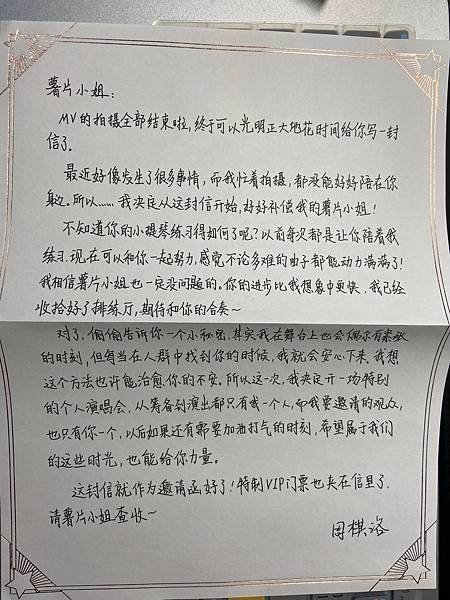 薯片小姐：
MV的拍摄全部结束啦，终于可以光明正大地花时间给你写一封
信了。
最近好像发生了很多事情，而我忙着拍摄，都没能好好陪在你
身边。所以……我决定从这封信开始，好好补偿我的薯片小姐！
不知道你的小提琴练习得如何了呢？以前每次都是让你陪着我
练习，现在可以和你一起努力，感觉不论多难的曲子都能动力满满了！
我相信薯片小姐也一定没问题的。你的进步比我想象中更快，我已经
收拾好了排练厅，期待和你的合奏～
对了，偷偷告诉你一个小秘密，其实我在舞台上也会偶尔有紧张
的时刻，但每当在人群中找到你的时候，我就会安心下来。我想
这个方法也许能治愈你的不安。所以这一次，我决定开一场特别
的个人演唱会，从筹备到演出都只有我一个人，而我要邀请的观众，
也只有你一个，以后如果还有需要加油打气的时刻，希望属于我们
的这些时光，也能给你力量。
这封信就作为邀请函好了！特制VIP门票也夹在信里了，
请薯片小姐查收～
周棋洛